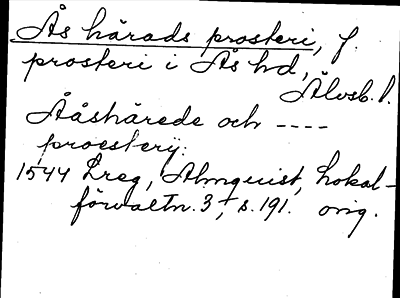 Ås härads prosteri, f.
prosteri i Ås hd,
Älvsb. l.
Ååshärede och ----
proestery:
1544 Lreg, Almquist, Lokal-
förvaltn. 3, s. 191. orig.